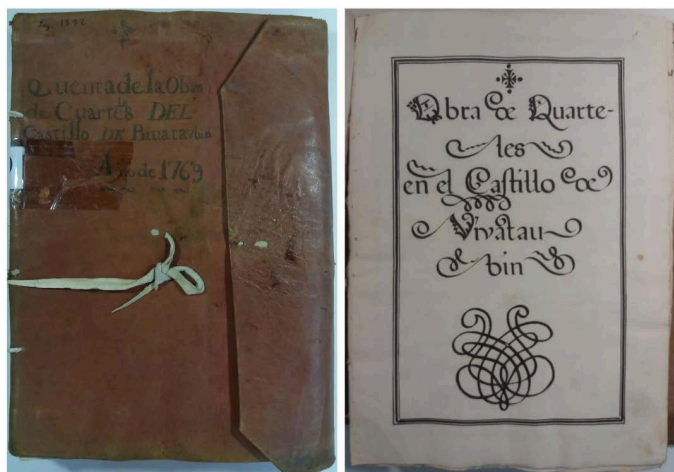 Quenta de la Obra
de Cuarteles DEL
Castillo DE Bivataubin
Año de 1769
Obra de Quarte-
les
en el Castillo de
Vivatau-
bin